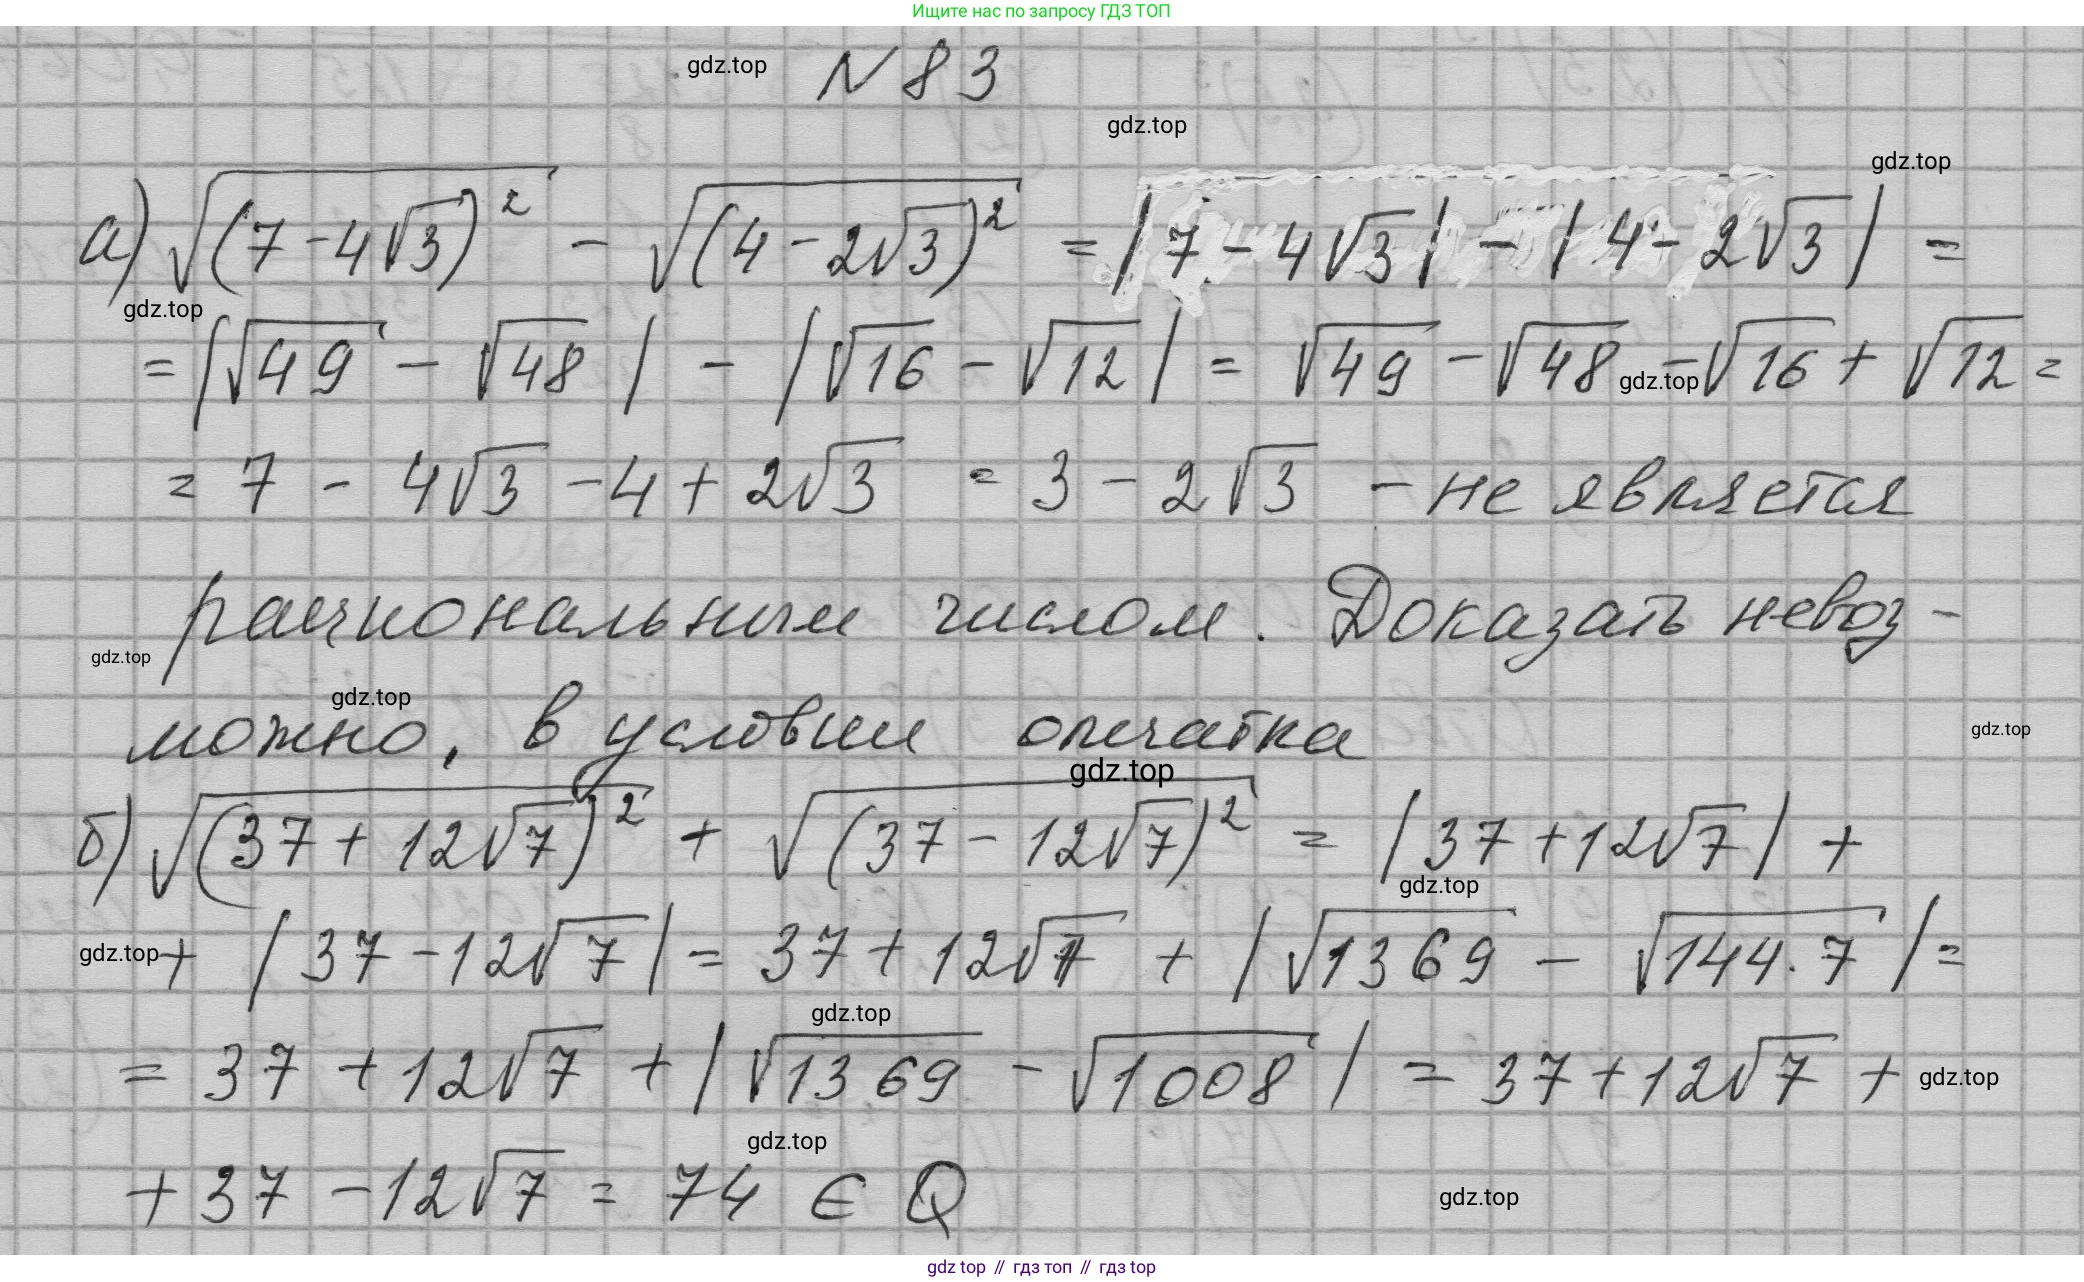 Ищите нас по запросу ГДЗ ТОП
gdz.top N 83
gdz.top
gdz.top
а) √(7 - 4√3)² - √(4 - 2√3)² = |7 - 4√3| - |4 - 2√3| =
gdz.top
= |√49 - √48| - |√16 - √12| = √49 - √48 - √16 + √12 =
gdz.top
= 7 - 4√3 - 4 + 2√3 = 3 - 2√3 - не является
рациональным числом. Доказать невоз-
gdz.top
gdz.top
можно, в условии опечатка
gdz.top
gdz.top
б) √(37 + 12√7)² + √(37 - 12√7)² = |37 + 12√7| +
gdz.top
gdz.top + |37 - 12√7| = 37 + 12√7 + |√1369 - √144·7| =
gdz.top
= 37 + 12√7 + |√1369 - √1008| = 37 + 12√7 + gdz.top
gdz.top
+ 37 - 12√7 = 74 ∈ Q
gdz.top
gdz top // гдз топ // гдз top